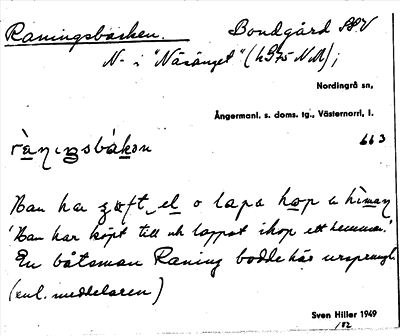 Raningsbacken. Bondgård
N. i "Näsänget" (h 975 N.M);
Nordingrå sn,
Ångermanl. s. doms. tg., Västernorrl. l.
663
Han ha o lapa hop
'Han har köpt till och lappat ihop ett hemman.'
En båtsman Raning bodde här ursprungl.
(enl. meddelaren)
Sven Hiller 1949